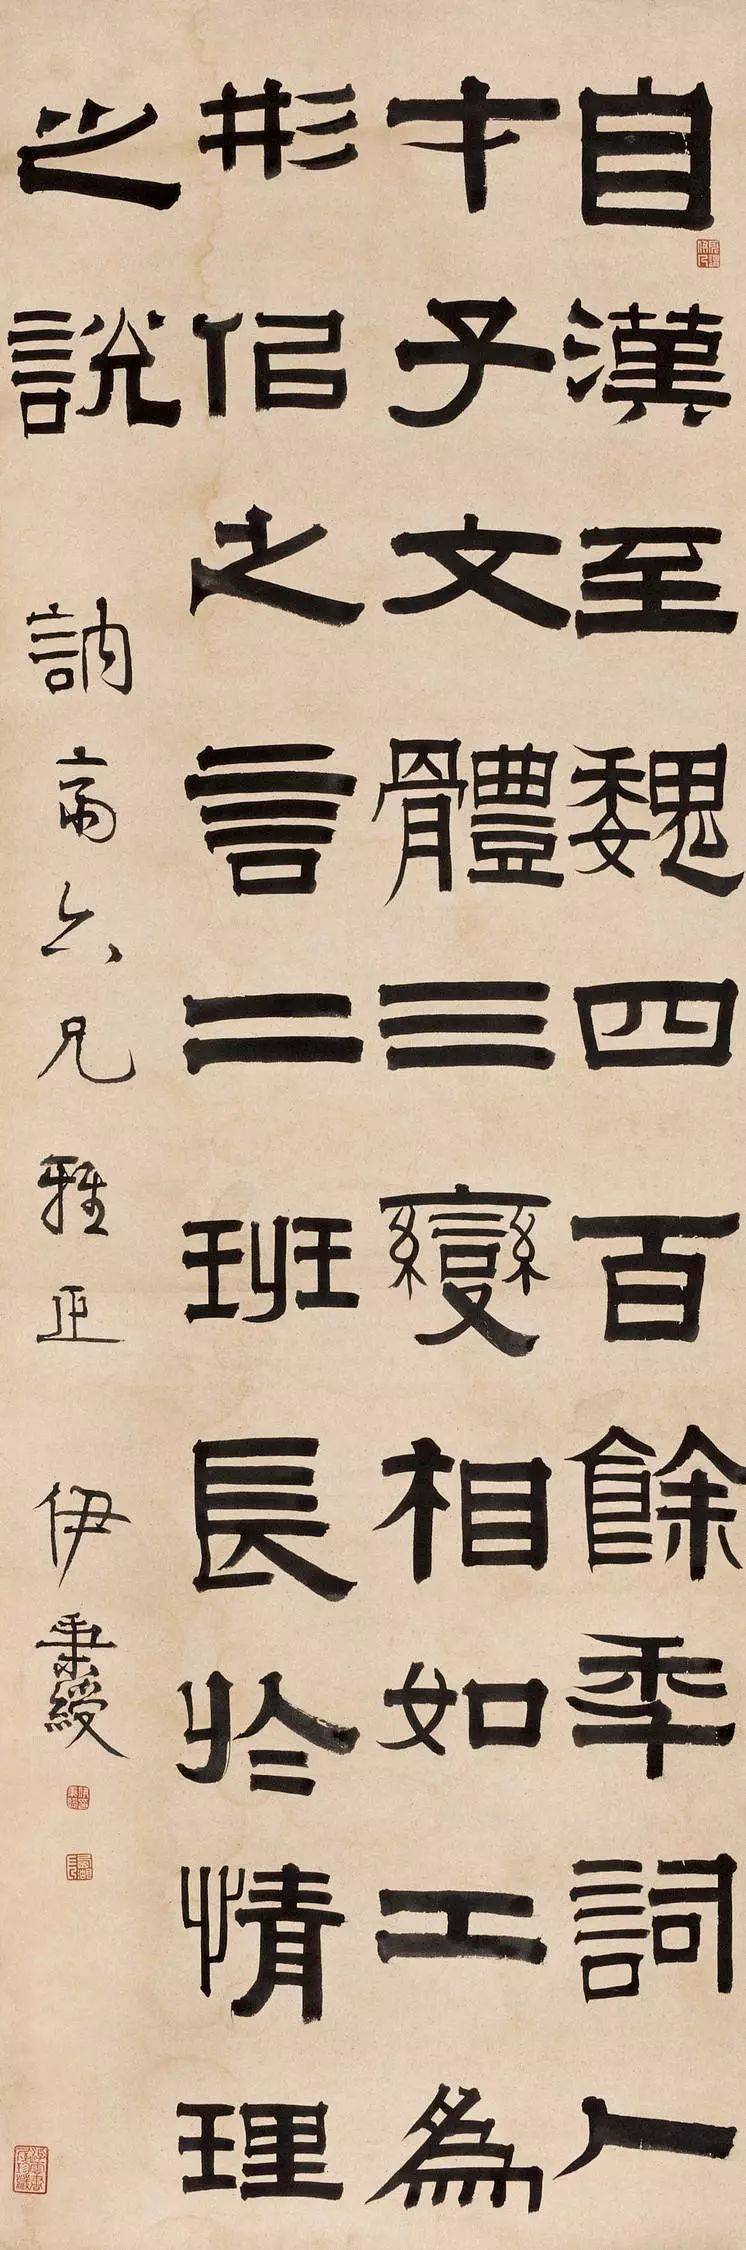 自漢至魏四百餘年詞人
才子文體三變相如工為
形佀之言二班長於情理
之說
訥齋六兄雅正 伊秉綬